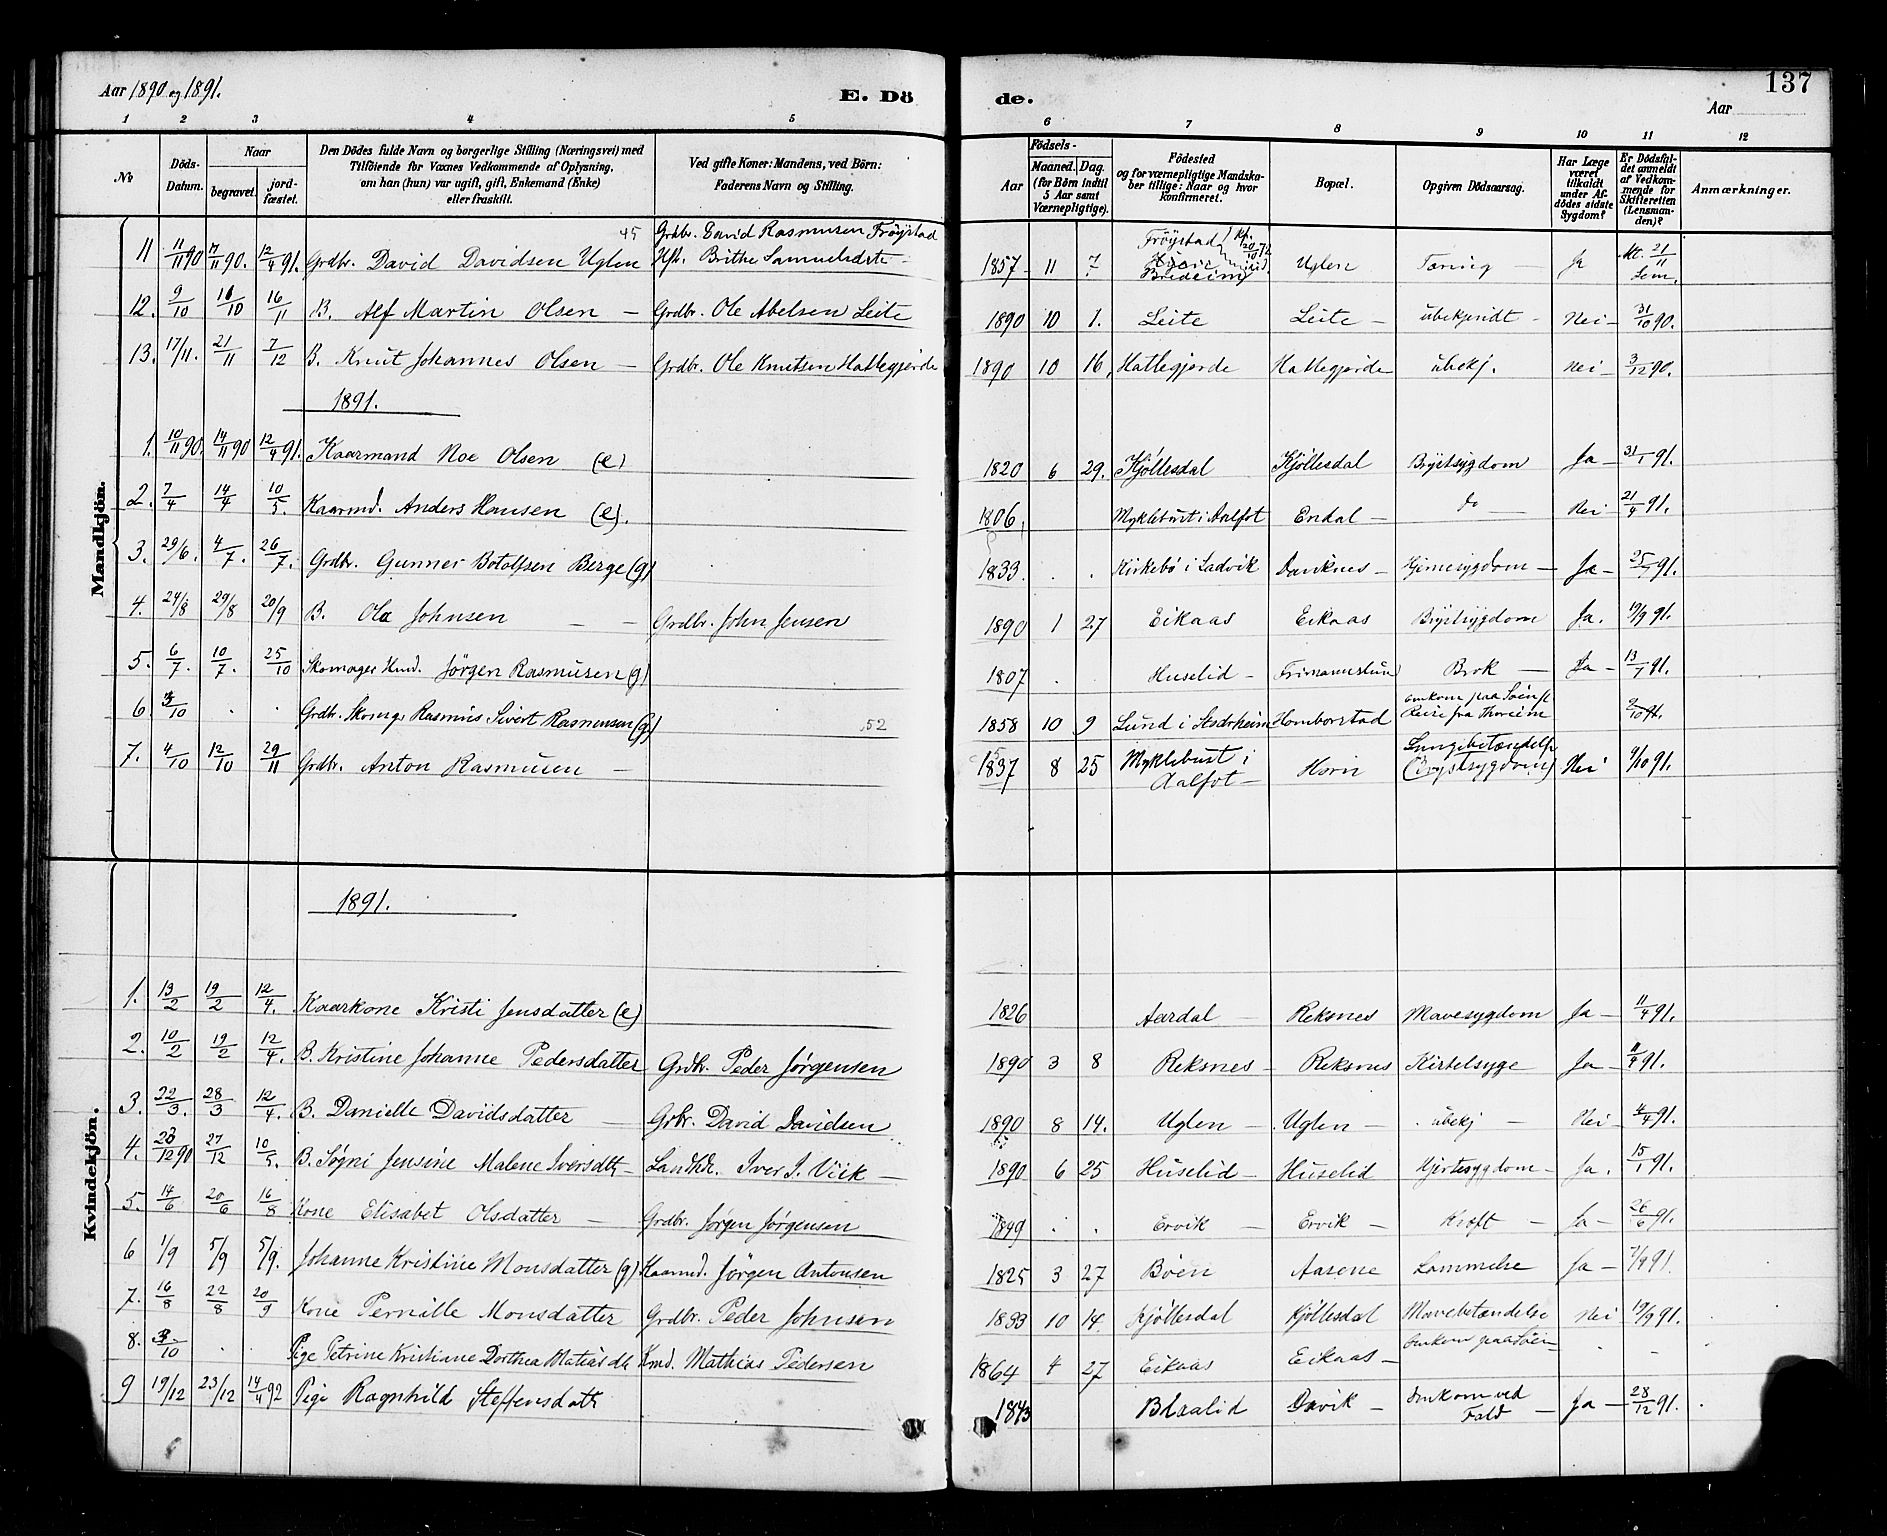 Aar 1890 og 1891.
E. Dö de.
137
Aar
1 2 3 4 5 6 7 8 9 10 11 12
No
Döds-Datum.
Naar
begravet.
jord-fæstet.
Den Dödes fulde Navn og borgerlige Stilling (Næringsvei) med
Tilföiende for Voxnes Vedkommende af Oplysning,
om han (hun) var ugift, gift, Enkemand (Enke)
eller fraskilt.
Ved gifte Koner: Mandens, ved Börn:
Faderens Navn og Stilling.
Födsels-
Aar
Maaned. Dag.
(for Börn indtil 5 Aar samt Værnepligtige).
Födested
og for værnepligtige Mandska-
ber tillige: Naar og hvor
konfirmeret.
Bopæl.
Opgiven Dödsaarsag.
Har Læge været tilkaldt under Af-dödes sidste Sygdom?
Er Dödsfal-det anmeldt af Vedkom-mende for Skifteretten (Lensman-den)?
Anmærkninger.
Mandkjön.
45 Grdbr. David Rasmusen Fröystad
11 11/11 90 17/11 90. 12/4 91. Grdbr. David Davidsen Uglen Hst. Brithe Samuelsdtr 1857 11 7 Fröystad Bredeim Uglen Tæring Ja 21/11
12. 9/10 16/10 16/11 B. Alf Martin Olsen Grdbr. Ole Abelsen Leite 1890 10 1. Leite Leite ubekjendt Nei 31/10 90.
13. 17/11. 21/11 7/12 B. Knut Johannes Olsen Grdbr. Ole Knutsen Hattegjerde 1890 10 16. Hattegjerde Hattegjerde ubekj. Nei 3/12 90.
1891.
1. 10/11 90. 14/11 90 12/4 91. Kaarmand Noe Olsen (e) 1820 6 29. Kjöllesdal Kjöllesdal Brystsygdom Ja 31/1 91.
2. 7/4 14/4 10/5. Kaarmd. Anders Hansen (e). 1806. Myklebust i Aalfot Endal do Nei 21/4 91.
3. 29/6. 4/7. 26/7. Grdbr. Gunner Botolfsen Berge (g) 1833. Kirkebö i Ladvik Dauknes Hjernesygdom Ja 25/7 91.
4. 24/8 29/8 20/9 B. Ola Johnsen Grdbr. John Jensen 1890 1 27 Eikaas Eikaas Brystsygdom Ja. 19/9 91.
5. 6/7. 10/7. 25/10 Skomager Hmd. Jörgen Rasmusen (g) 1807 Huselid Frimannslund Brok Ja 13/7 91.
6. 3/10 Grdbr. Skomgr Rasmus Sivert Rasmusen (g) 52 1858 10 9 Lund i Stadsheim Homborstad omkom paa Söen p. Reise fra Thoreim 9/10 91.
7. 4/10 12/10 29/11 Grdbr. Anton Rasmusen 1837 8 25 Myklebust i Aalfot Horn Lungebetændelse (Brystsygdom) Nei 9/10 91.
Kvindekjön.
1891.
1. 13/2 19/2 12/4. Kaarkone Kristi Jensdatter (e) 1826 Aardal Reksnes Mavesygdom Ja 11/4 91.
2. 10/2 19/2 12/4. B. Kristine Johanne Pedersdatter Grdbr. Peder Jørgensen 1890 3 8 Reksnes Reksnes Kirtelsyge Ja 11/4 91.
3. 22/3. 28/3 12/4. B. Danielle Davidsdatter Grbr. David Davidsen 1890 8 14. Uglen Uglen ubekj Nei 4/4 91.
4. 23/12 90 27/12 10/5. B. Søgni Jensine Malene Iversdtt. Landhdl. Iver J. Viik 1890 6 25 Huselid Huselid Hjertesygdom Ja. 15/1 91.
5. 14/6 20/6 16/8 Kone Elisabet Olsdatter Grdbr. Jørgen Jørgensen 1849 Ervik Ervik Kræft Ja 26/6 91.
6 1/9 5/9 5/9. Johanne Kristine Monsdatter (g) Kaarmd. Jørgen Antonsen 1825 3 27 Böen Aasene Lammelse Ja 7/9 91.
7. 16/8 22/8 20/9 Kone Pernille Monsdatter Grdbr. Peder Johnsen 1833 10 14. Kjöllesdal Kjöllesdal Mavebetændelse Nei 19/9 91.
8. 3/10 Pige Petrine Kristiane Dorthea Matiasdtr Kmd. Mathias Pedersen 1864 4 27 Eikaas Eikaas Omkom paa Söen
9 19/12 23/12 14/4 92 Pige Ragnhild Steffensdatr 1843 Blaalid Davik Omkom ved Fald Ja 28/12 91.